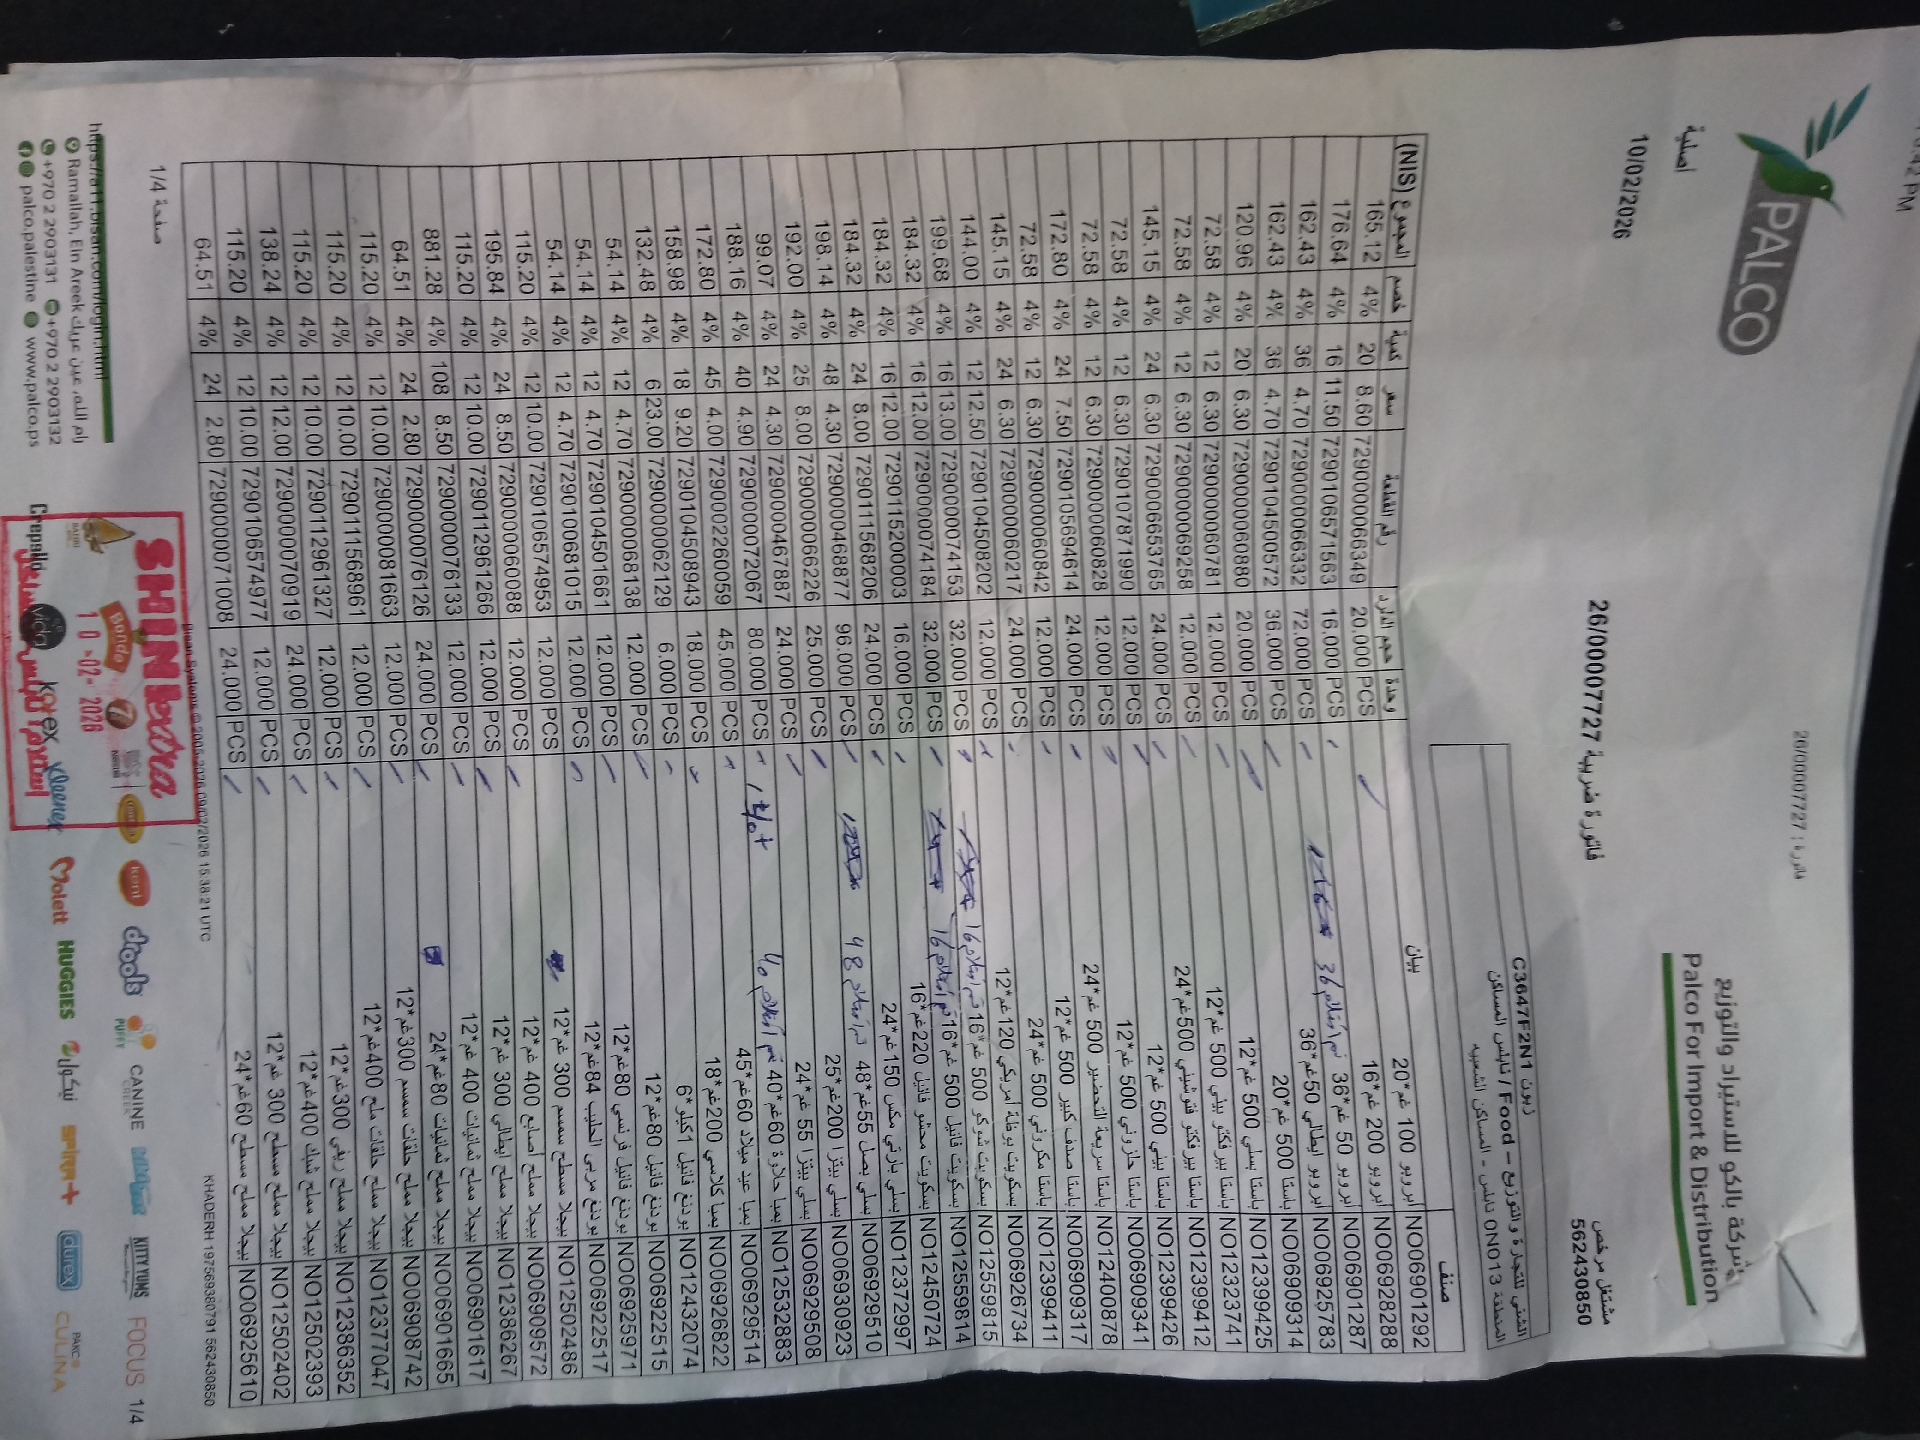 فاتورة : 26/00007727
PALCO
شركة بالكو للاستيراد والتوزيع
Palco For Import & Distribution
اصلية
مشتغل مرخص 562430850
فاتورة ضريبية 26/00007727
10/02/2026
زبون C3647F2N1
الشني للتجارة والتوزيع – Food / نابلس المساكن
المنطقة 0N013 نابلس - المساكن الشعبيه
صنف بيان وحدة حجم الطرد رقم القطعة سعر كمية خصم المجموع (NIS)
NO06901292 ابروبو 100 غم*20 PCS 20.000 7290000066349 8.60 20 4% 165.12
NO06928288 ابروبو 200 غم*16 PCS 16.000 7290106571563 11.50 16 4% 176.64
NO06901287 ابروبو 50 غم*36 تم استلام 36 PCS 72.000 7290000066332 4.70 36 4% 162.43
NO06925783 ابروبو ايطالي 50غم*36 PCS 36.000 7290104500572 4.70 36 4% 162.43
NO06909314 باستا 500 غم*20 PCS 20.000 7290000060880 6.30 20 4% 120.96
NO12399425 باستا بسلي 500 غم*12 PCS 12.000 7290000060781 6.30 12 4% 72.58
NO12323741 باستا بيرفكتو بيني 500 غم*12 PCS 12.000 7290000069258 6.30 12 4% 72.58
NO12399412 باستا بيرفكتو فتوشيني 500غم*24 PCS 24.000 7290006653765 6.30 24 4% 145.15
NO12399426 باستا بيني 500 غم*12 PCS 12.000 7290107871990 6.30 12 4% 72.58
NO06909341 باستا حلزوني 500 غم*12 PCS 12.000 7290000060828 6.30 12 4% 72.58
NO12400878 باستا سريعة التحضير 500 غم*24 PCS 24.000 7290105694614 7.50 24 4% 172.80
NO06909317 باستا صدف كبير 500 غم*12 PCS 12.000 7290000060842 6.30 12 4% 72.58
NO12399411 باستا مكروني 500 غم*24 PCS 24.000 7290000060217 6.30 24 4% 145.15
NO06926734 بسكويت بوظة أمريكي 120غم*12 PCS 12.000 7290104508202 12.50 12 4% 144.00
NO12559815 بسكويت شوكو 500 غم*16 تم استلام 16 PCS 32.000 7290000074153 13.00 16 4% 199.68
NO12559814 بسكويت فانيل 500 غم*16 تم استلام 16 PCS 32.000 7290000074184 12.00 16 4% 184.32
NO12450724 بسكويت محشو فانيل 220غم*16 PCS 16.000 7290115200003 12.00 16 4% 184.32
NO12372997 بسلي بارتي مكس 150 غم*24 PCS 24.000 7290111568206 8.00 24 4% 184.32
NO06929510 بسلي بصل 55غم*48 تم استلام 48 PCS 96.000 7290000468877 4.30 48 4% 198.14
NO06930923 بسلي بيتزا 200غم*25 PCS 25.000 7290000066226 8.00 25 4% 192.00
NO06929508 بسلي بيتزا 55 غم*24 PCS 24.000 7290000467887 4.30 24 4% 99.07
NO12532883 بمبا حلاوة 60غم*40 تم استلام 40 PCS 80.000 7290000072067 4.90 40 4% 188.16
NO06929514 بمبا عيد ميلاد 60غم*45 PCS 45.000 7290002260059 4.00 45 4% 172.80
NO06926822 بمبا كلاسي 200غم*18 PCS 18.000 7290104508943 9.20 18 4% 158.98
NO12432074 بودنغ فانيل 1كيلو*6 PCS 6.000 7290000062129 23.00 6 4% 132.48
NO06922515 بودنغ فانيل 80غم*12 PCS 12.000 7290000068138 4.70 12 4% 54.14
NO06925971 بودنغ فانيل فرنسي 80غم*12 PCS 12.000 7290104501661 4.70 12 4% 54.14
NO06922517 بودنغ مربى الحليب 84غم*12 PCS 12.000 7290100681015 4.70 12 4% 54.14
NO12502486 بيجلا مسطح سمسم 300 غم*12 PCS 12.000 7290106574953 10.00 12 4% 115.20
NO06909572 بيجلا مملح اصابع 400 غم*12 PCS 12.000 7290000060088 8.50 24 4% 195.84
NO12386267 بيجلا مملح ايطالي 300 غم*12 PCS 12.000 7290112961266 10.00 12 4% 115.20
NO06901617 بيجلا مملح ثمانيات 400 غم*12 PCS 12.000 7290000076133 8.50 108 4% 881.28
NO06901665 بيجلا مملح ثمانيات 80غم*24 PCS 24.000 7290000076126 2.80 24 4% 64.51
NO06908742 بيجلا مملح حلقات سمسم 300غم*12 PCS 12.000 7290000081663 10.00 12 4% 115.20
NO12377047 بيجلا مملح حلقات ملح 400غم*12 PCS 12.000 7290111568961 10.00 12 4% 115.20
NO12386352 بيجلا مملح ريفي 300غم*12 PCS 12.000 7290112961327 10.00 12 4% 115.20
NO12502393 بيجلا مملح شبك 400غم*12 PCS 24.000 7290000070919 12.00 12 4% 138.24
NO12502402 بيجلا مملح مسطح 300 غم*12 PCS 12.000 7290106574977 10.00 12 4% 115.20
NO06925610 بيجلا مملح مسطح 60غم*24 PCS 24.000 7290000071008 2.80 24 4% 64.51
KHADERH 197569380791 562430850
Bisan Systems © 2005-2026 09/02/2026 15:38:21 UTC
صفحة 1/4
SHINIextra
10-02-2026
Bondo kent drools PUFFY CANINE KITTY YUMS FOCUS 1/4
Crepallo vida Kotex Kleenex Molett HUGGIES نيكولز SPIRIT+ durex PAKC CULINA
https://a11.bisan.com/login.html
Ramallah, Ein Areek رام الله، عين عريك
+970 2 2903131 +970 2 2903132
palco.palestine www.palco.ps